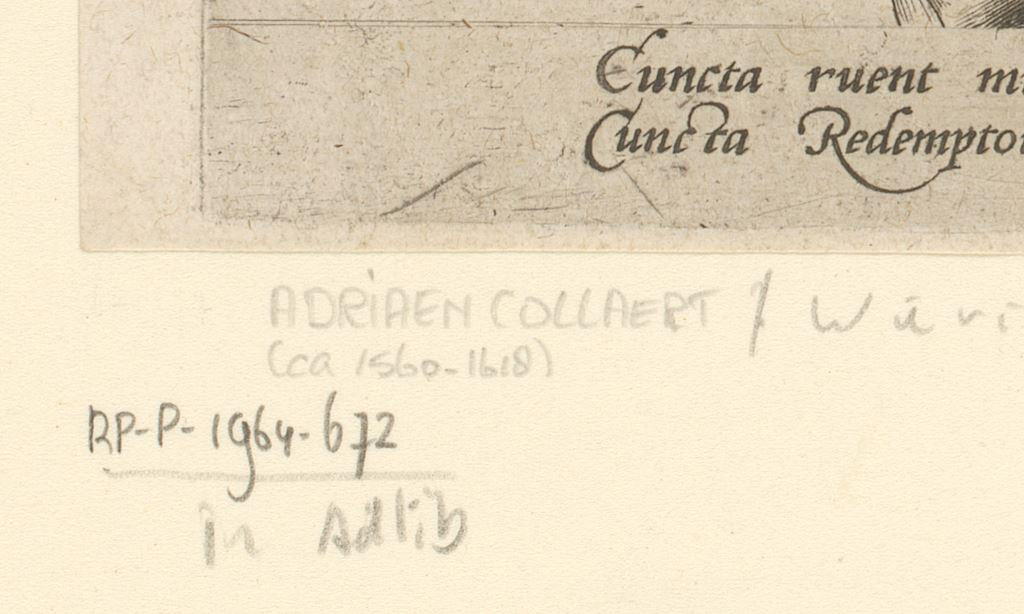 Cuncta ruent
Cuncta
ADRIAEN COLLAERT /
(ca 1560-1618)
RP-P-1964-672
in Adlib